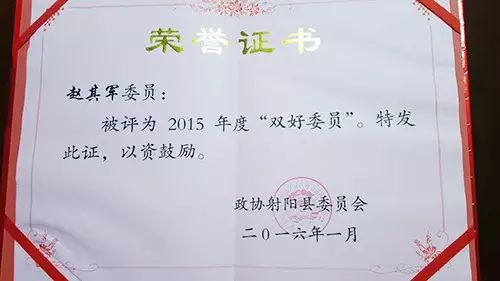 荣誉证书
赵其军委员：
被评为 2015 年度“双好委员”。特发
此证，以资鼓励。
政协射阳县委员会
二0一六年一月